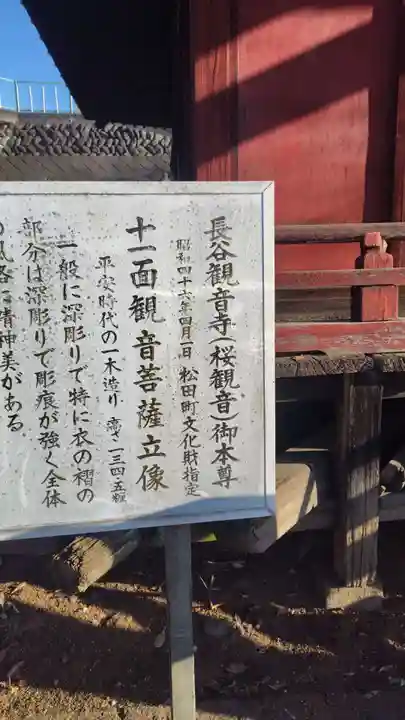 長谷観音寺(桜観音)御本尊
昭和四十六年四月一日 松田町文化財指定
十一面観音菩薩立像
平安時代の一木造り 高さ一三四・五糎
一般に深彫りで特に衣の褶の
部分は深彫りで彫痕が強く全体
の風格に精神美がある